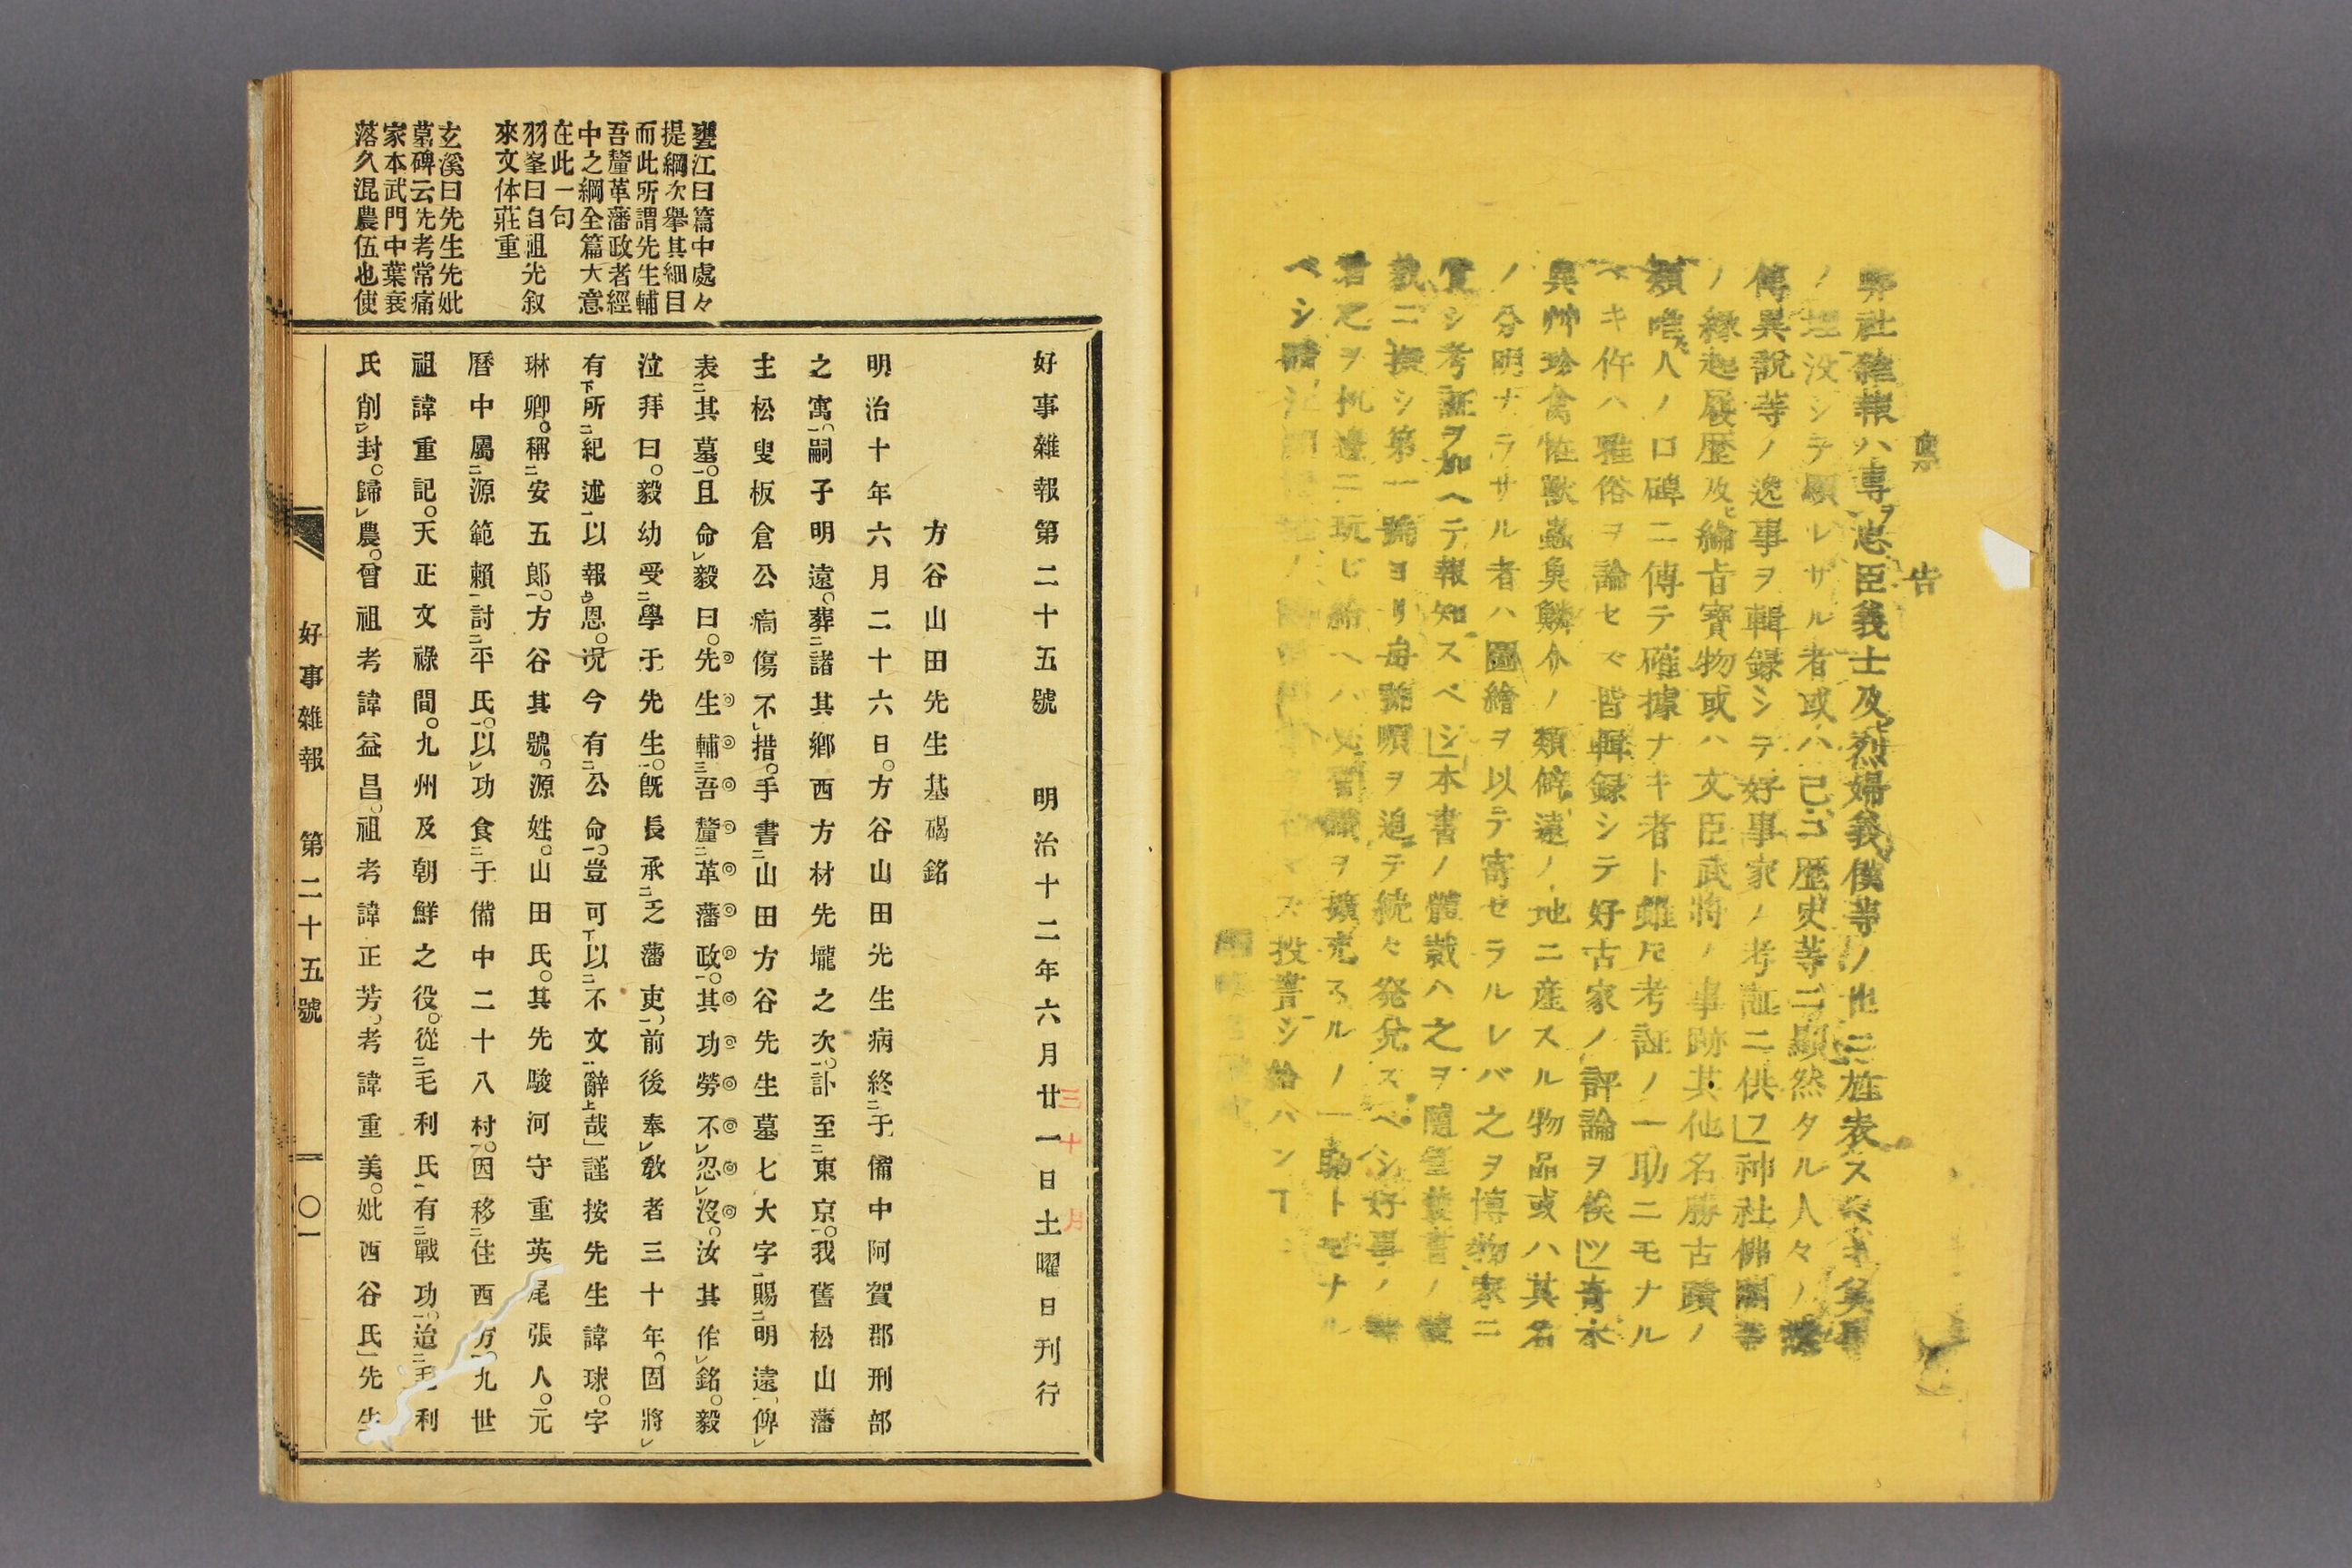 稟告
弊社雜報ハ專ヲ忠臣義士及ヒ烈婦義僕等ノ世ニ旌表ス
ノ埋没シテ顯レサル者或ハ己ニ歴史等ニ顯然タル人々ノ
傳異説等ノ逸事ヲ輯録シテ好事家ノ考証ニ供フ神社佛閣等
ノ緣起履歴及ヒ綸旨寶物或ハ文臣武將ノ事跡其他名勝古蹟ノ
類唯人ノ口碑ニ傳テ確據ナキ者ト雖𪜈考証ノ一助ニモナル
ベキ件ハ雅俗ヲ論セズ皆輯録シテ好古家ノ評論ヲ俟ツ草木
異艸珍禽怪獸蟲魚鱗介ノ類僻遠ノ地ニ産スル物品或ハ其名
ノ分明ナラサル者ハ圖繪ヲ以テ寄セラルレバ之ヲ博物家ニ
質シ考証ヲ加ヘテ報知スベシ本書ノ體裁ハ之ヲ隨筆叢書ノ
ニ擬シ第一號ヨリ毎號順ヲ追テ続々発兌スベシ好事ノ
君之ヲ机邊ニ玩ビ給ヘハ ヲ擴充スルノ一助トモナル
ベシ 投書シ給ハン
好事雜報第二十五號　明治十二年六月廿一日土曜日刊行
三十月
方谷山田先生墓碣銘
明治十年六月二十六日。方谷山田先生病終二于備中阿賀郡刑部
之寓一。嗣子明遠。葬二諸其鄉西方村先壠之次一。訃至二東京一。我舊松山藩
主松叟板倉公痛傷不レ措。手書二山田方谷先生墓七大字一。賜二明遠一。俾レ
表二其墓一。且命レ毅曰。先生輔三吾釐二革藩政一。其功勞不レ忍レ沒。汝其作レ銘。毅
泣拜曰。毅幼受二學于先生一。既長承二乏藩吏一。前後奉レ敎者三十年。固將レ
有下所二紀述一以報上恩。况今有二公命一。豈可下以二不文一辭上哉」謹按先生諱球。字
琳卿。稱二安五郎一。方谷其號。源姓。山田氏。其先駿河守重英尾張人。元
曆中屬二源範賴一討二平氏一。以レ功食二于備中二十八村一。因移二住西方一。九世
祖諱重記。天正文祿間。九州及朝鮮之役。從二毛利氏一有二戰功一。迨二毛利
氏削レ封。歸レ農。曾祖考諱益昌。祖考諱正芳。考諱重美。妣西谷氏」先生
甕江曰篇中處々
提綱次擧其細目
而此所謂先生輔
吾釐革藩政者經
中之綱全篇大意
在此一句
羽峯曰自祖先叙
來文体莊重
玄溪曰先生先妣
墓碑云先考常痛
家本武門中葉衰
落久混農伍也使
好事雜報　第二十五號　一〇一